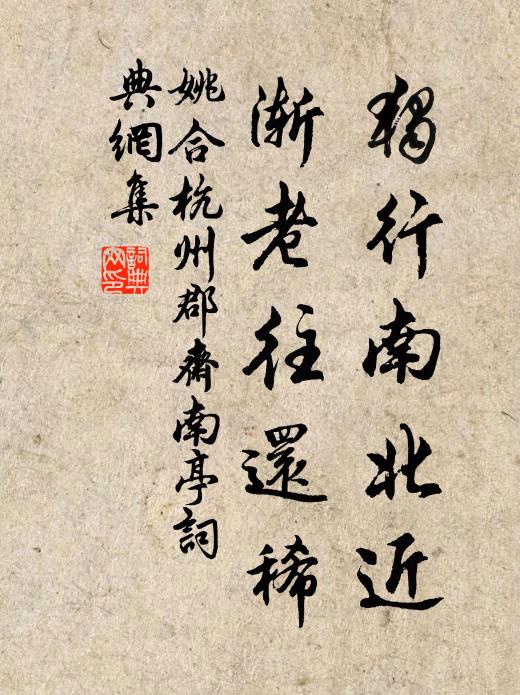 獨行南北近
漸老往還稀
姚合杭州郡齋南亭詞
典網集
詞典